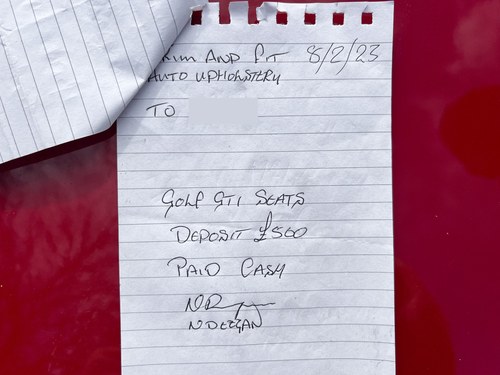 Trim AND Fit 8/2/23
AUTO UPHOLSTERY
TO
GOLF GTI SEATS
DEPOSIT £500
PAID CASH
N DEEGAN